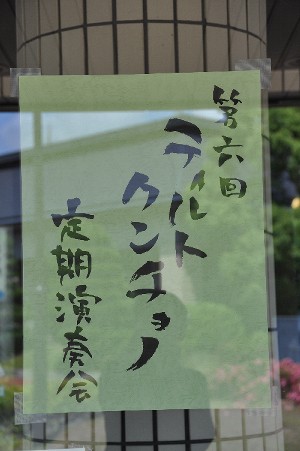 第六回
ティルト
クンチョノ
定期演奏会